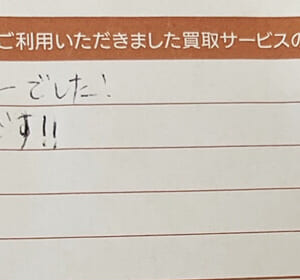 ご利用いただきました買取サービスの
ーでした!
です!!